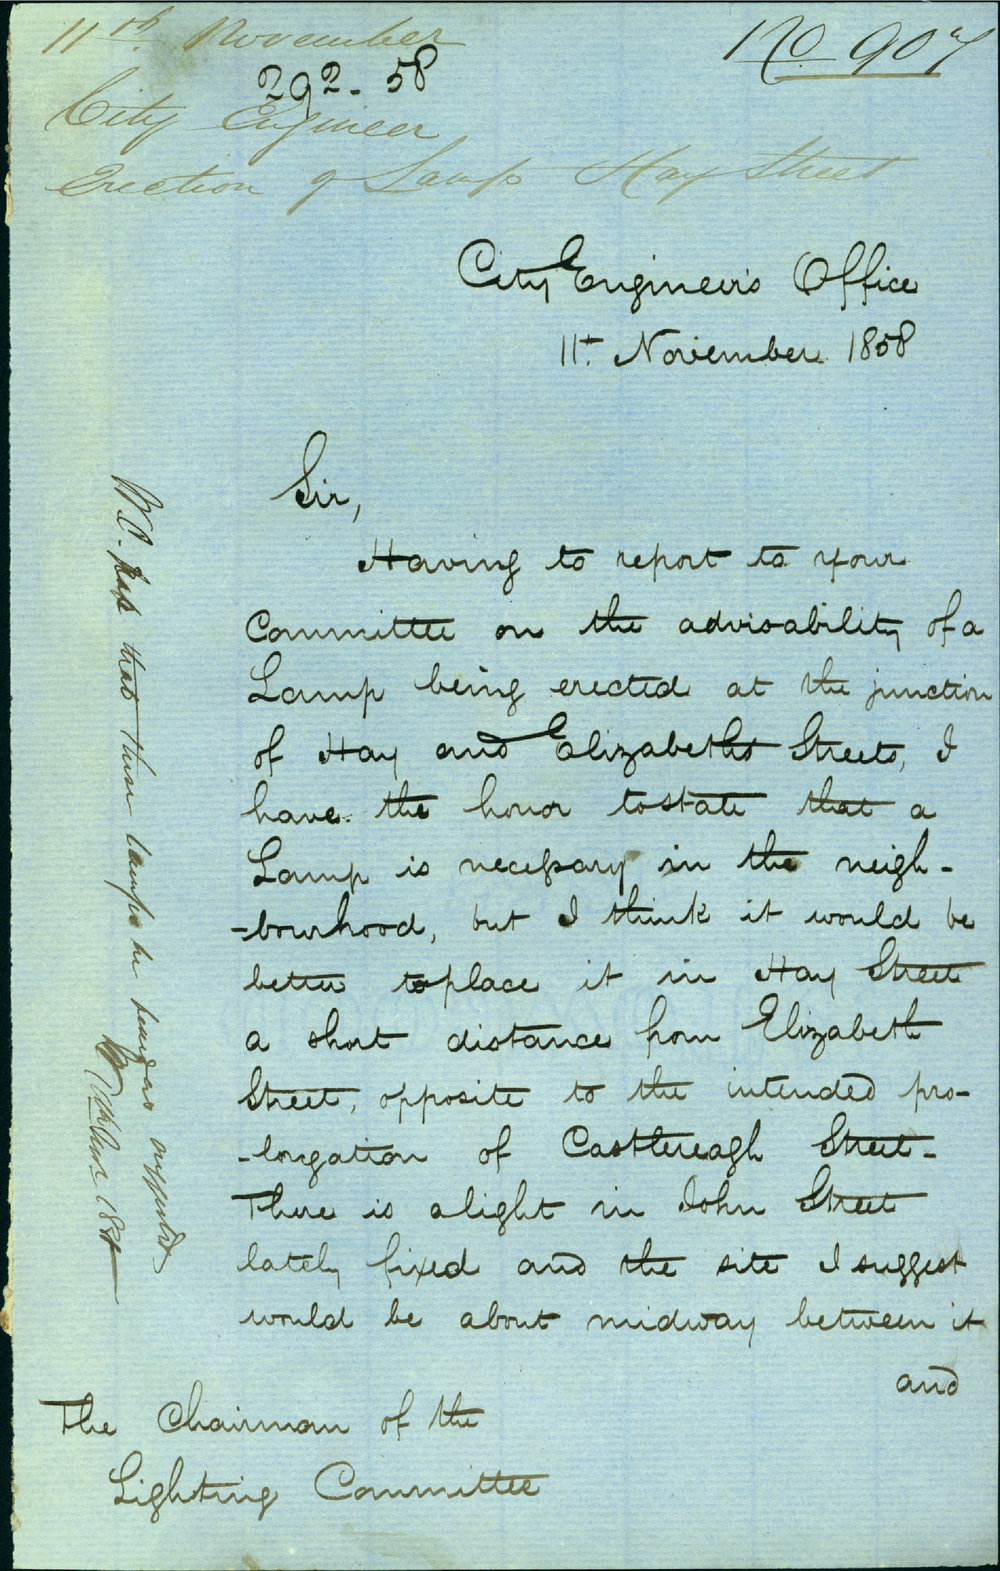 11th November
No 907
292-58
City Engineer
Erection of Lamp Hay Street
City Engineer's Office
11th November 1858
Sir,
Having to report to your
Committee on the advisability of a
Lamp being erected at the junction
of Hay and Elizabeth Streets, I
have the honor to state that a
Lamp is necessary in the neigh-
-bourhood, but I think it would be
better to place it in Hay Street
a short distance from Elizabeth
Street, opposite to the intended pro-
-longation of Castlereagh Street-
There is a light in John Street
lately fixed and the site I suggest
would be about midway between it
and
The Chairman of the
Lighting Committee
that these lamps be